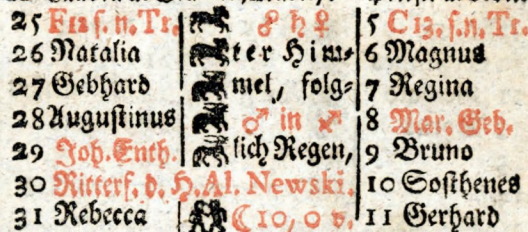 25 F 12 s. n. Tr. ☍ ♄ ♀ 5 C 13. s. n. Tr.
26 Natalia ter Him- 6 Magnus
27 Gebhard mel, folg- 7 Regina
28 Augustinus ♂ in ♐ 8 Mar. Geb.
29 Joh. Enth. lich Regen, 9 Bruno
30 Ritterf. d. H. Al. Newski. 10 Sosthenes
31 Rebecca ☾ 10, 0 v. 11 Gerhard